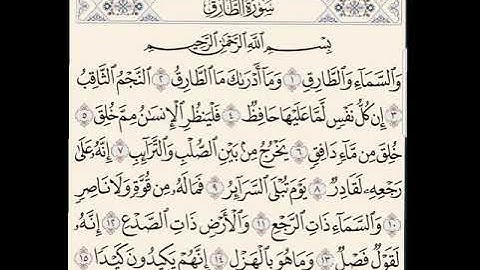 سُورَةُ الطَّارِقِ
بِسْمِ اللَّهِ الرَّحْمَٰنِ الرَّحِيمِ
وَالسَّمَاءِ وَالطَّارِقِ ١ وَمَا أَدْرَىٰكَ مَا الطَّارِقُ ٢ النَّجْمُ الثَّاقِبُ
٣ إِن كُلُّ نَفْسٍ لَّمَّا عَلَيْهَا حَافِظٌ ٤ فَلْيَنظُرِ الْإِنسَٰنُ مِمَّ خُلِقَ ٥
خُلِقَ مِن مَّاءٍ دَافِقٍ ٦ يَخْرُجُ مِن بَيْنِ الصُّلْبِ وَالتَّرَائِبِ ٧ إِنَّهُ عَلَىٰ
رَجْعِهِ لَقَادِرٌ ٨ يَوْمَ تُبْلَى السَّرَائِرُ ٩ فَمَا لَهُ مِن قُوَّةٍ وَلَا نَاصِرٍ
١٠ وَالسَّمَاءِ ذَاتِ الرَّجْعِ ١١ وَالْأَرْضِ ذَاتِ الصَّدْعِ ١٢ إِنَّهُ
لَقَوْلٌ فَصْلٌ ١٣ وَمَا هُوَ بِالْهَزْلِ ١٤ إِنَّهُمْ يَكِيدُونَ كَيْدًا ١٥